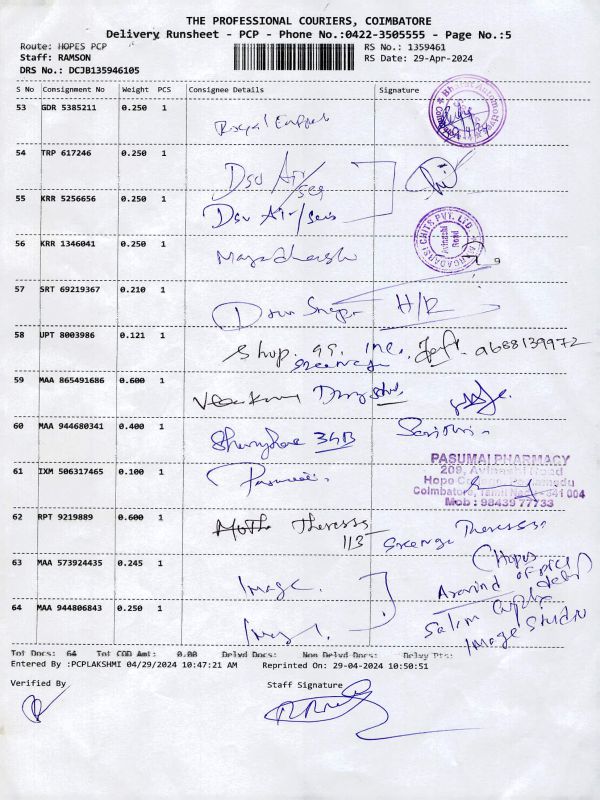 THE PROFESSIONAL COURIERS, COIMBATORE
Delivery Runsheet - PCP - Phone No.:0422-3505555 - Page No.:5
Route: HOPES PCP
RS No.: 1359461
Staff: RAMSON
RS Date: 29-Apr-2024
DRS No.: DCJB135946105
S No Consignment No Weight PCS Consignee Details Signature
53 GDR 5385211 0.250 1
Royal
54 TRP 617246 0.250 1
Dsv Air/sea
55 KRR 5256656 0.250 1
Dsv Air/sea
56 KRR 1346041 0.250 1
MARGADARSI CHITS PVT. LTD
Avinashi Road
57 SRT 69219367 0.210 1
H/R
58 UPT 8003986 0.121 1
Shop. 99. inc. 9688139972
59 MAA 865491686 0.600 1
60 MAA 944680341 0.400 1
34B
61 IXM 506317465 0.100 1
PASUMAI PHARMACY
209, Avinashi Road
Hope College, Peelamedu
Coimbatore, Tamil Nadu - 641 004
Mob : 9843977733
62 RPT 9219889 0.600 1
Theresss
113
63 MAA 573924435 0.245 1
Image.
Aravind
64 MAA 944806843 0.250 1
Image Studio
Tot Docs: 64 Tot COD Amt: 0.00 Delvd Docs: Non Delvd Docs: Delvy Pts:
Entered By :PCPLAKSHMI 04/29/2024 10:47:21 AM Reprinted On: 29-04-2024 10:50:51
Verified By Staff Signature